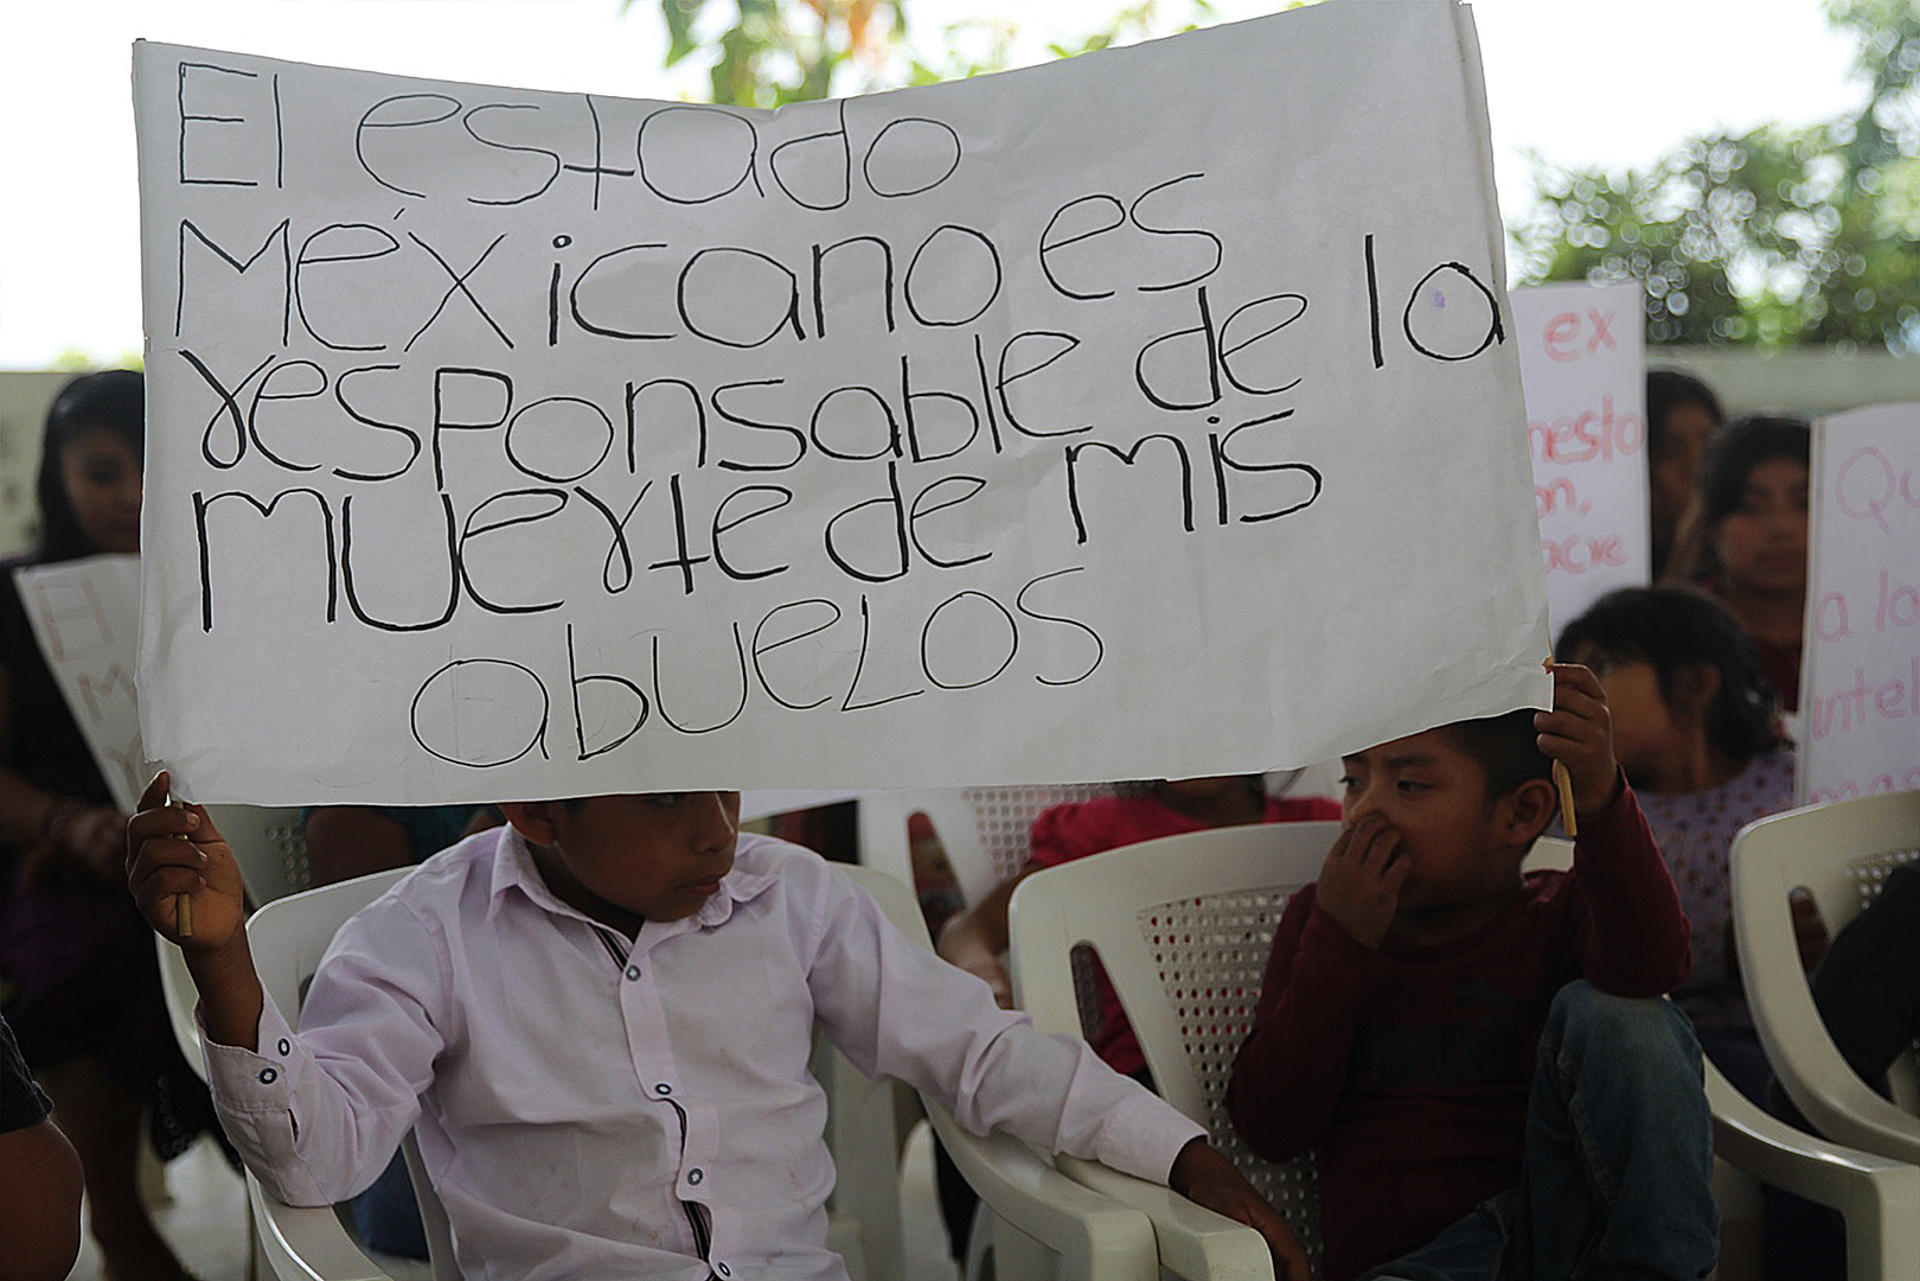 El estado
Méxicano es
responsable de la
muerte de mis
abuelos
ex
nesto
on,
acre
Qu
a lo
intel
mas
El
M